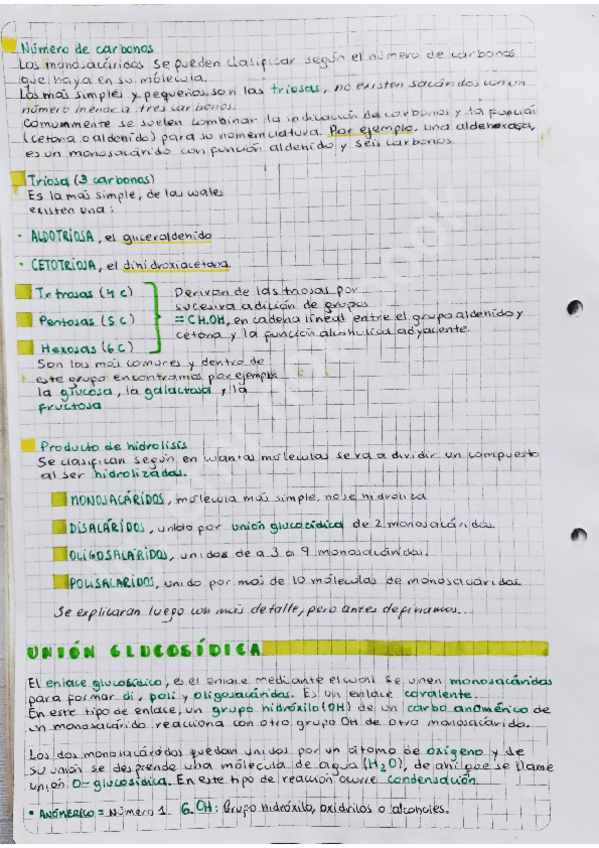 Número de carbonos
Los monosacáridos se pueden clasificar según el número de carbonos
que haya en su molécula.
Los más simples y pequeños, son las triosas, no existen sacáridos con un
número menor a tres carbonos.
Comunmente se suelen combinar la indicación de carbonos y la función
(cetona o aldehido) para su nomenclatura. Por ejemplo, una aldohexosa,
es un monosacárido con función aldehido y seis carbonos.
Triosa (3 carbonos)
Es la más simple, de las cuales
existen una:
• ALDOTRIOSA, el gliceraldehido
• CETOTRIOSA, el dihidroxiacetona
Tetrosas (4 C)
Pentosas (5 C)
Hexosas (6 C)
Derivan de las triosas por
sucesiva adición de grupos
= CH.OH, en cadena líneal entre el grupo aldehido y
cetona y la función alcoholica adyacente.
Son las más comunes y dentro de
este grupo encontramos por ejemplo
la glucosa, la galactosa y la
fructosa
Producto de hidrolisis
Se clasifican según en cuantas moléculas se va a dividir un compuesto
al ser hidrolizadas.
MONOSACÁRIDOS, molécula más simple, no se hidroliza
DISACÁRIDOS, unido por unión glucocídica de 2 monosacáridos.
OLIGOSACÁRIDOS, unidos de a 3 a 9 monosacáridos.
POLISACARIDOS, unido por más de 10 moléculas de monosacáridos
Se explicaran luego con más detalle, pero antes definamos...
UNIÓN GLUCOSÍDICA
El enlace glucosídico, es el enlace mediante el cual se unen monosacáridos
para formar di, poli y oligosacáridos. Es un enlace covalente.
En este tipo de enlace, un grupo hidróxilo (OH) de un carbo anomérico de
un monosacárido reacciona con otro grupo OH de otro monosacárido.
Los dos monosacáridos quedan unidos por un átomo de oxígeno y de
su unión se desprende una molécula de agua (H₂O), de ahí que se llame
unión O-glucosídica. En este tipo de reacción ocurre condensación.
• ANÓMERICO = Número 1 G. OH: Grupo hidróxilo, oxidrilos o alcoholes.